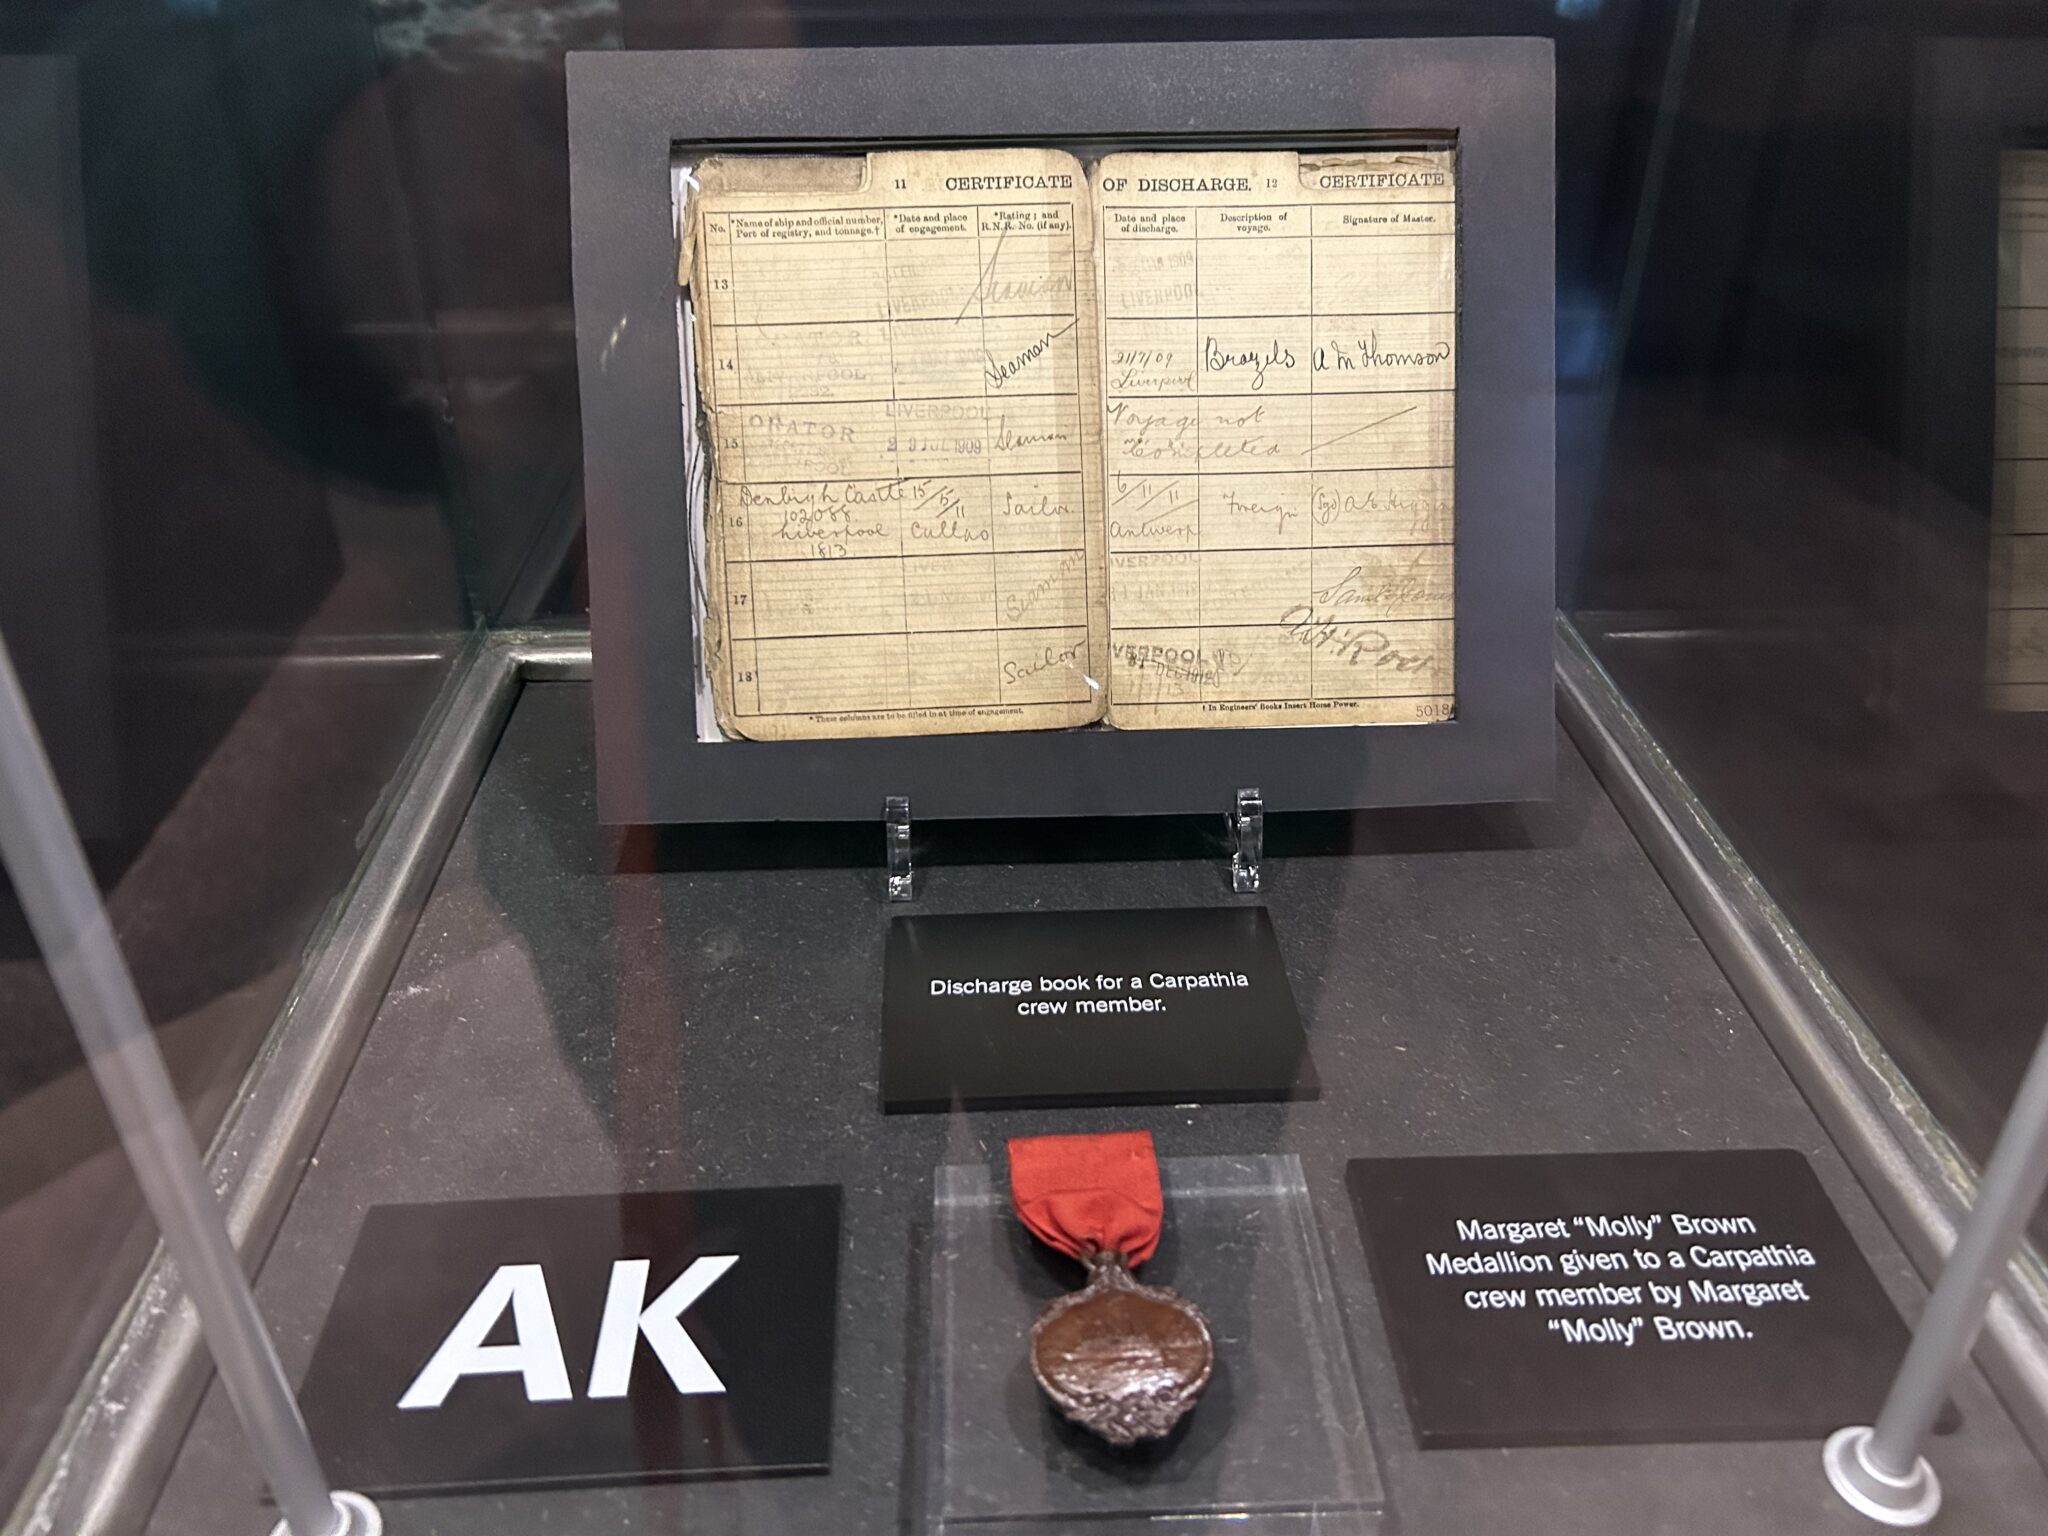 11 CERTIFICATE OF DISCHARGE. 12 CERTIFICATE
No. *Name of ship and official number, Port of registry, and tonnage.†
*Date and place of engagement.
*Rating; and R.N.R. No. (if any).
Date and place of discharge.
Description of voyage.
Signature of Master.
13
LIVERPOOL
Seaman
1909
LIVERPOOL
14
Seaman
21/7/09
Liverpool
Brazils
A M Thomson
15
ORATOR
LIVERPOOL
JUL 1909
Seaman
Voyage not
Completed
16
Denbigh Castle
102088
Liverpool
1813
15/5/11
Callao
Sailor
6/11/11
Antwerp
Foreign
(Sgd) A E
17
Seaman
IVERPOOL
18
Sailor
VERPOOL
DEC 1912
* These columns are to be filled in at time of engagement.
† In Engineers' Books Insert Horse Power.
5018
Discharge book for a Carpathia
crew member.
AK
Margaret “Molly” Brown
Medallion given to a Carpathia
crew member by Margaret
“Molly” Brown.